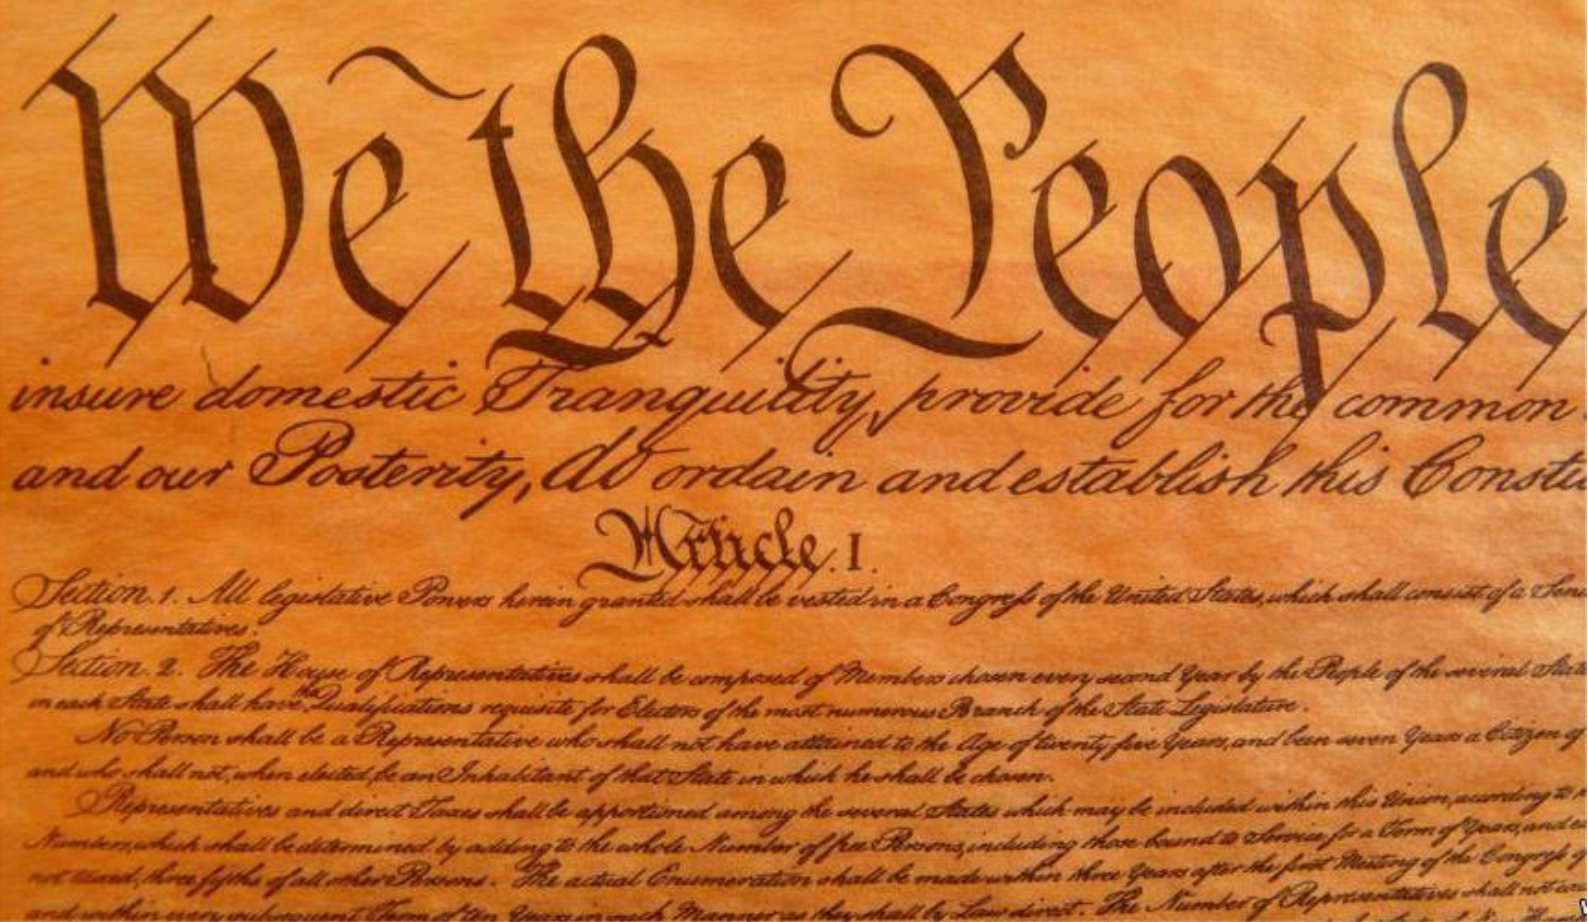 We the People
insure domestic Tranquility, provide for the common
and our Posterity, do ordain and establish this Constitu
Article. I.
Section. 1. All legislative Powers herein granted shall be vested in a Congress of the United States, which shall consist of a Sena
of Representatives.
Section. 2. The House of Representatives shall be composed of Members chosen every second Year by the People of the several State
in each State shall have the Qualifications requisite for Electors of the most numerous Branch of the State Legislature.
No Person shall be a Representative who shall not have attained to the Age of twenty five Years, and been seven Years a Citizen of
and who shall not, when elected, be an Inhabitant of that State in which he shall be chosen.
Representatives and direct Taxes shall be apportioned among the several States which may be included within this Union, according to
Numbers, which shall be determined by adding to the whole Number of free Persons, including those bound to Service for a Term of Years, and
not taxed, three fifths of all other Persons. The actual Enumeration shall be made within three Years after the first Meeting of the Congress
and within every subsequent Term of ten Years, in such Manner as they shall by Law direct. The Number of Representatives shall not